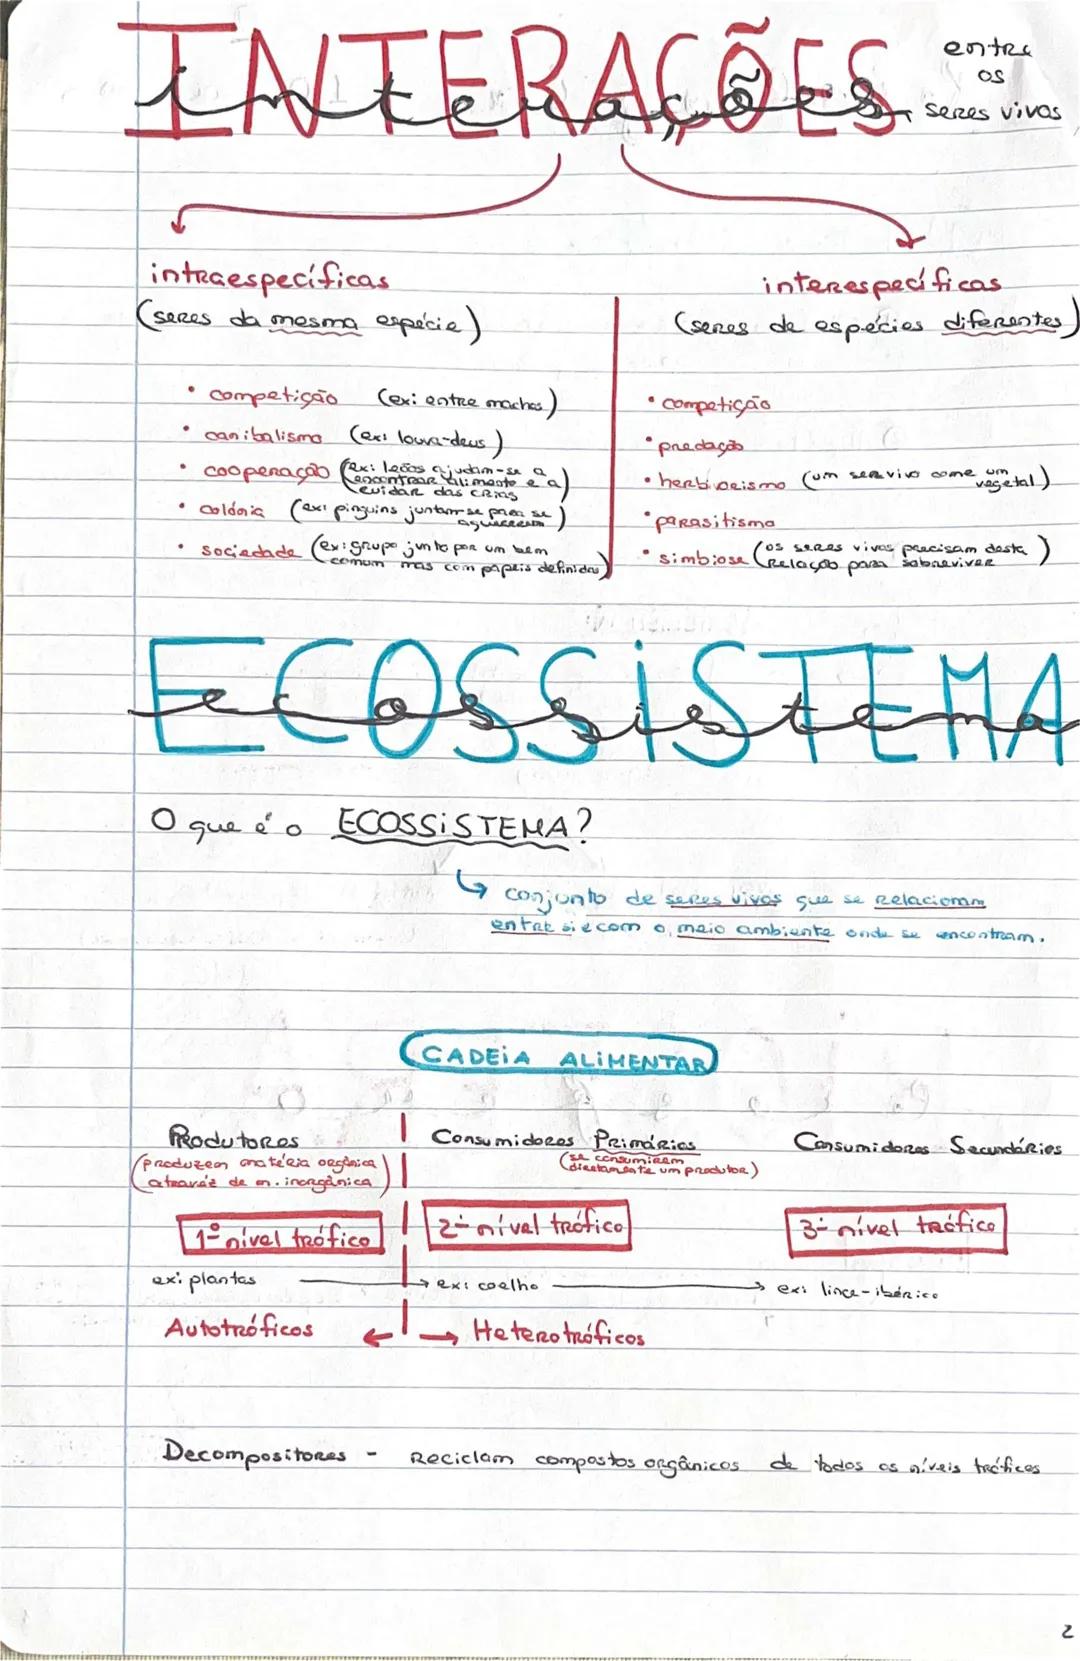 INTERAÇÕES
interações
entre
os
seres vivos
intraespecíficas
(seres da mesma espécie)
• competição (ex: entre machos)
• canibalismo (ex: louva-deus)
• cooperação (ex: leões ajudam-se a
encontrar alimento e a
cuidar das crias)
• colónia (ex: pinguins juntam-se para se
aquecerem)
• sociedade (ex: grupo junto por um bem
comum mas com papeis definidos)
interespecíficas
(seres de espécies diferentes)
• competição
• predação
• herbivorismo (um ser vivo come um
vegetal)
• parasitismo
• simbiose (os seres vivos precisam desta
relação para sobreviver)
ECOSSISTEMA
ecossistema
O que é o ECOSSISTEMA?
↳ conjunto de seres vivos que se relacionam
entre si e com o meio ambiente onde se encontram.
CADEIA ALIMENTAR
Produtores
(produzem matéria orgânica
através de m. inorgânica)
1º nível trófico
ex: plantas
Autotróficos
Consumidores Primários
(se consumirem
diretamente um produtor)
2º nível trófico
ex: coelho
Heterotróficos
Consumidores Secundários
3º nível trófico
ex: lince-ibérico
Decompositores - Reciclam compostos orgânicos de todos os níveis tróficos
2